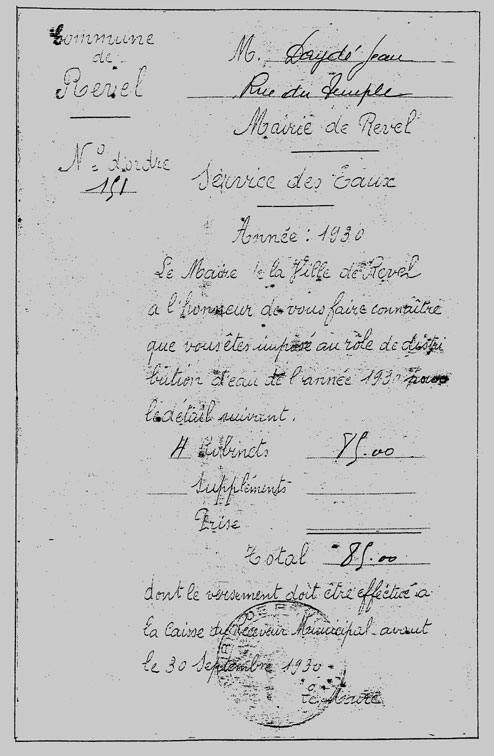 Commune
de
Revel
N° d'ordre
151
M. Daydé Jean
Rue du Temple
Mairie de Revel
Service des Eaux
Année : 1930
Le Maire de la Ville de Revel
a l'honneur de vous faire connaître
que vous êtes imposé au rôle de distri
bution d'eau de l'année 1930 pour
le détail suivant.
4 Robinets 85.00
Suppléments
Prise
Total 85.00
dont le versement doit être effectué a
la Caisse du Receveur Municipal avant
le 30 Septembre 1930
Le Maire